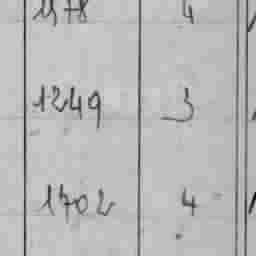 1178 4
1249 3
1702 4